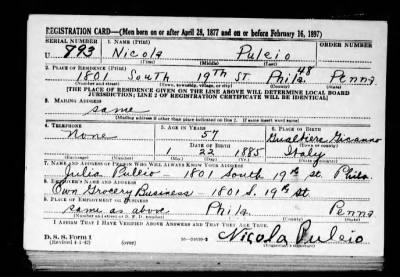 REGISTRATION CARD—(Men born on or after April 28, 1877 and on or before February 16, 1897)
SERIAL NUMBER 1. NAME (Print) ORDER NUMBER
U 893 Nicola Pulcio
(First) (Middle) (Last)
2. PLACE OF RESIDENCE (Print)
1801 South 19TH ST Phila 48 Penna
(Number and street) (Town, township, village, or city) (County) (State)
[THE PLACE OF RESIDENCE GIVEN ON THE LINE ABOVE WILL DETERMINE LOCAL BOARD
JURISDICTION; LINE 2 OF REGISTRATION CERTIFICATE WILL BE IDENTICAL]
3. MAILING ADDRESS
same
[Mailing address if other than place indicated on line 2. If same insert word same]
4. TELEPHONE 5. AGE IN YEARS 6. PLACE OF BIRTH
none 57
DATE OF BIRTH
1 22 1885 Italy
(Exchange) (Number) (Mo.) (Day) (Yr.) (State or country)
7. NAME AND ADDRESS OF PERSON WHO WILL ALWAYS KNOW YOUR ADDRESS
Julia Pulcio — 1801 South 19th st Phila.
8. EMPLOYER'S NAME AND ADDRESS
Own Grocery Business — 1801 S. 19th st
9. PLACE OF EMPLOYMENT OR BUSINESS
same as above Phila Penna
(Number and street or R. F. D. number) (Town) (County) (State)
I AFFIRM THAT I HAVE VERIFIED ABOVE ANSWERS AND THAT THEY ARE TRUE.
D. S. S. Form 1
(Revised 4-1-42) (over) Nicola Pulcio